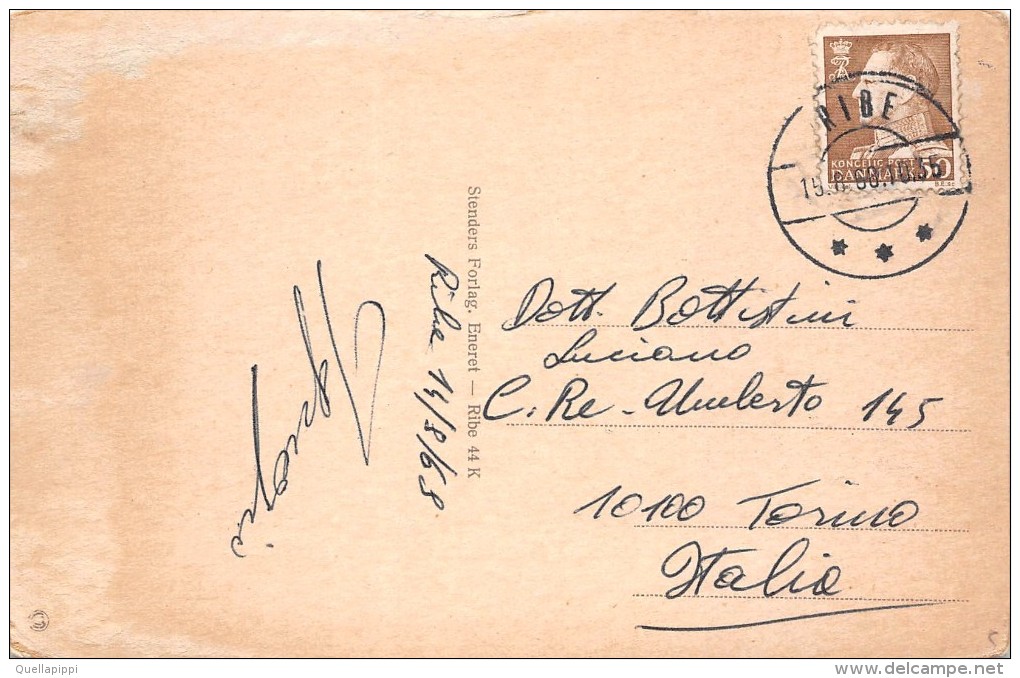 RIBE
KONGELIG POST
DANMARK 50
Stenders Forlag. Eneret — Ribe 44 K
Ribe 14/8/68
Dott. Bottistini
Luciano
C. Re-Umberto 145
10100 Torino
Italia
Quellapippi
www.delcampe.net